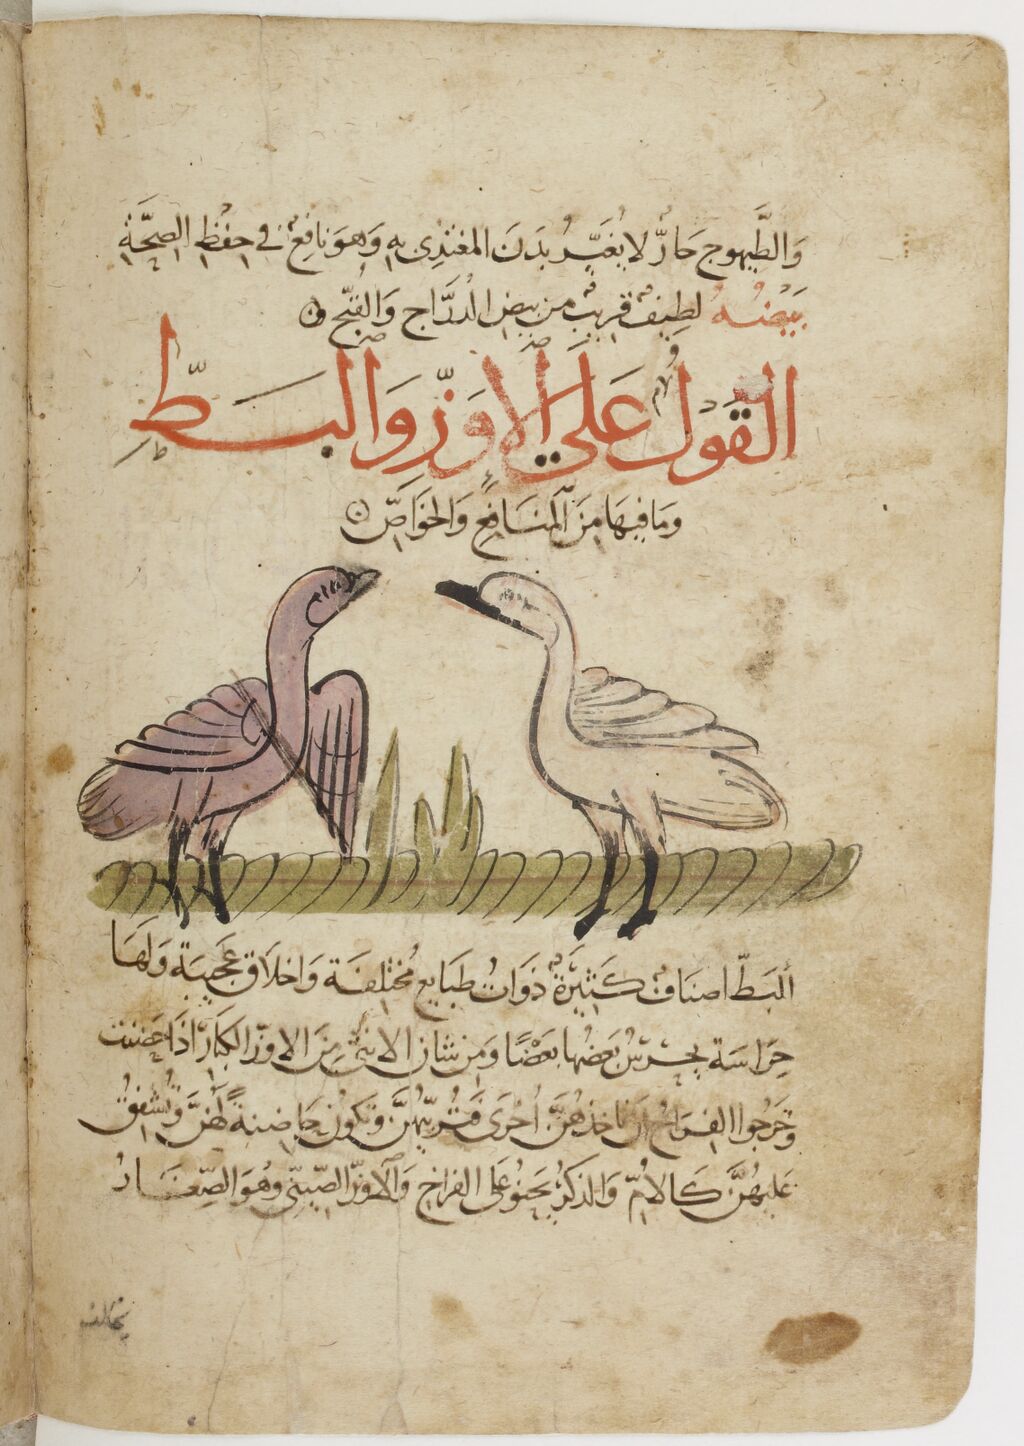 وَالطَّيهوج حَارٌّ لا يُغَيّرُ بدَنَ المغتذِى بهِ وَهوَ نافعٌ في حِفْظِ الصِحَّةِ
بَيْضُهُ لطِيفٌ قريبٌ من بيض الدُرَّاج وَالقبَج
القَول عَلَى الاوَزّ وَالبَطّ
وما فيهَا مِنَ المنَافِع وَالخوَاصّ
البَطّ اصنافٌ كَثيرَةٌ ذوَاتُ طبَايع مُختلفة وَاخلاق عَجيبَة وَلهَا
حِرَاسَة يحرسُ بَعضُها بَعْضًا وَمِن شان الانثى مِنَ الاوزّ الكبَار اذا حضنت
وَخرجُوا الفرَاخ ان تاخذهُنَّ اُخرَى فتُربّيهُنَّ وَتكونُ حَاضِنةً لهُنَّ وَتُشفِقُ
عَليهُنَّ كالاُمّ وَالذكَرُ يَحنوُ عَلى الفراخ وَالاوزّ الصّينىّ وَهُوَ الصّغَارُ
يخالف